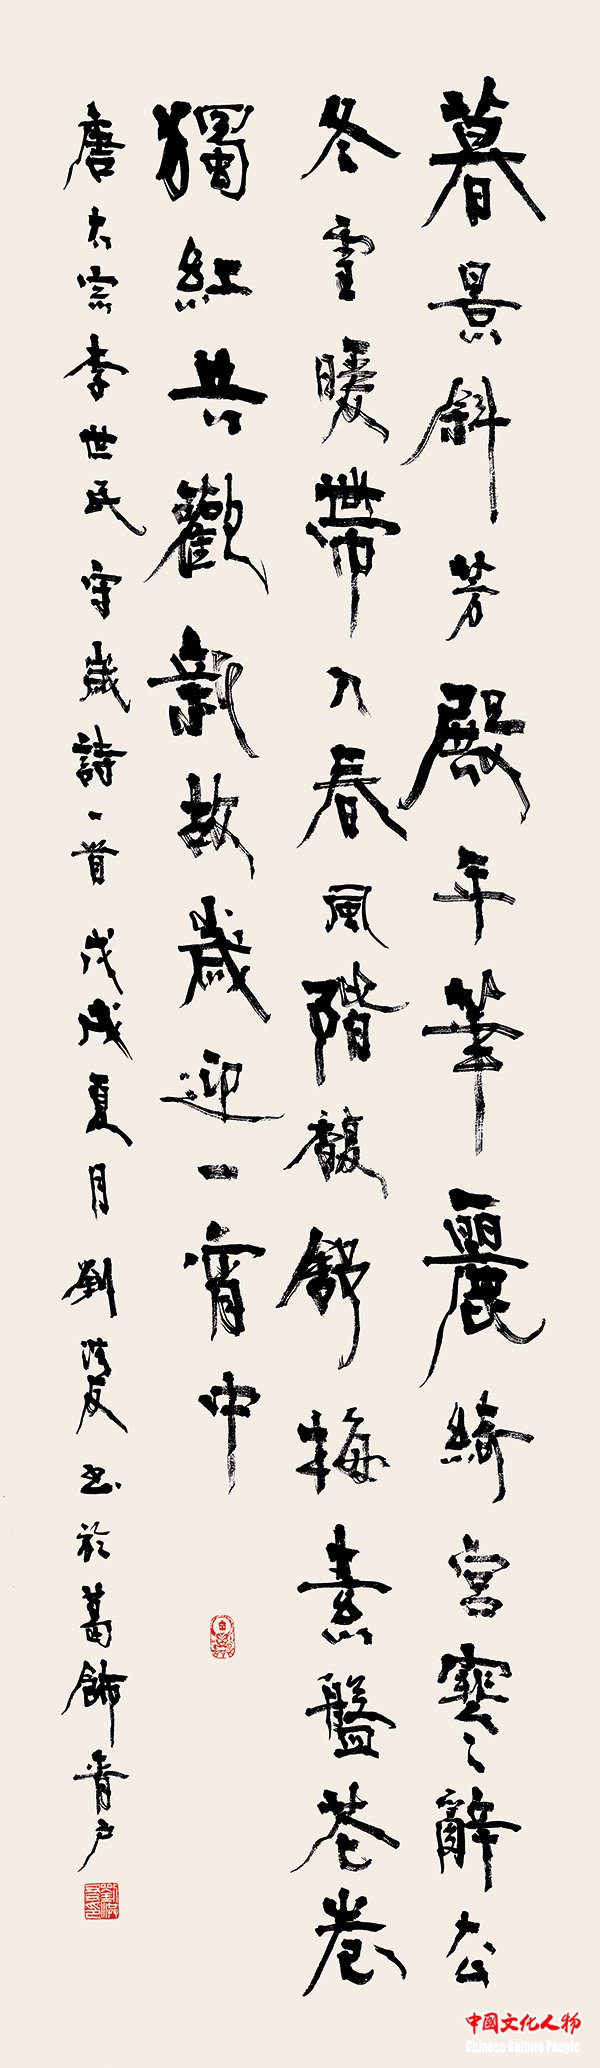 暮景斜芳殿年華麗綺宮寒辭去
冬雪暖帶入春風階馥舒梅素盤花卷
獨紅共歡新故歲迎一宵中
唐太宗李世民守歲詩一首戊戌夏月劉洪友书於葛飾青戶
中國文化人物
Chinese Culture People